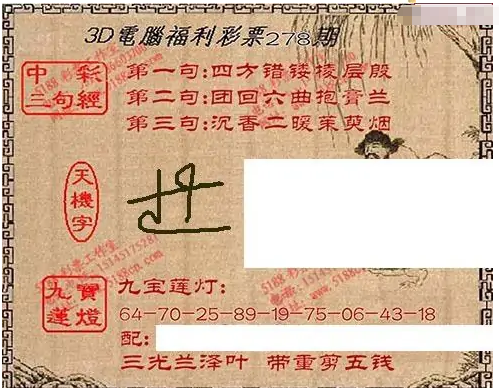 3D電腦福利彩票278期
中彩
三句經
第一句:四方错镂棱层殷
第二句:团回六曲抱膏兰
第三句:沉香二暖茱萸烟
天機字
九寶
蓮燈
九宝莲灯:
64-70-25-89-19-75-06-43-18
配:
三光兰泽叶 带重剪五钱